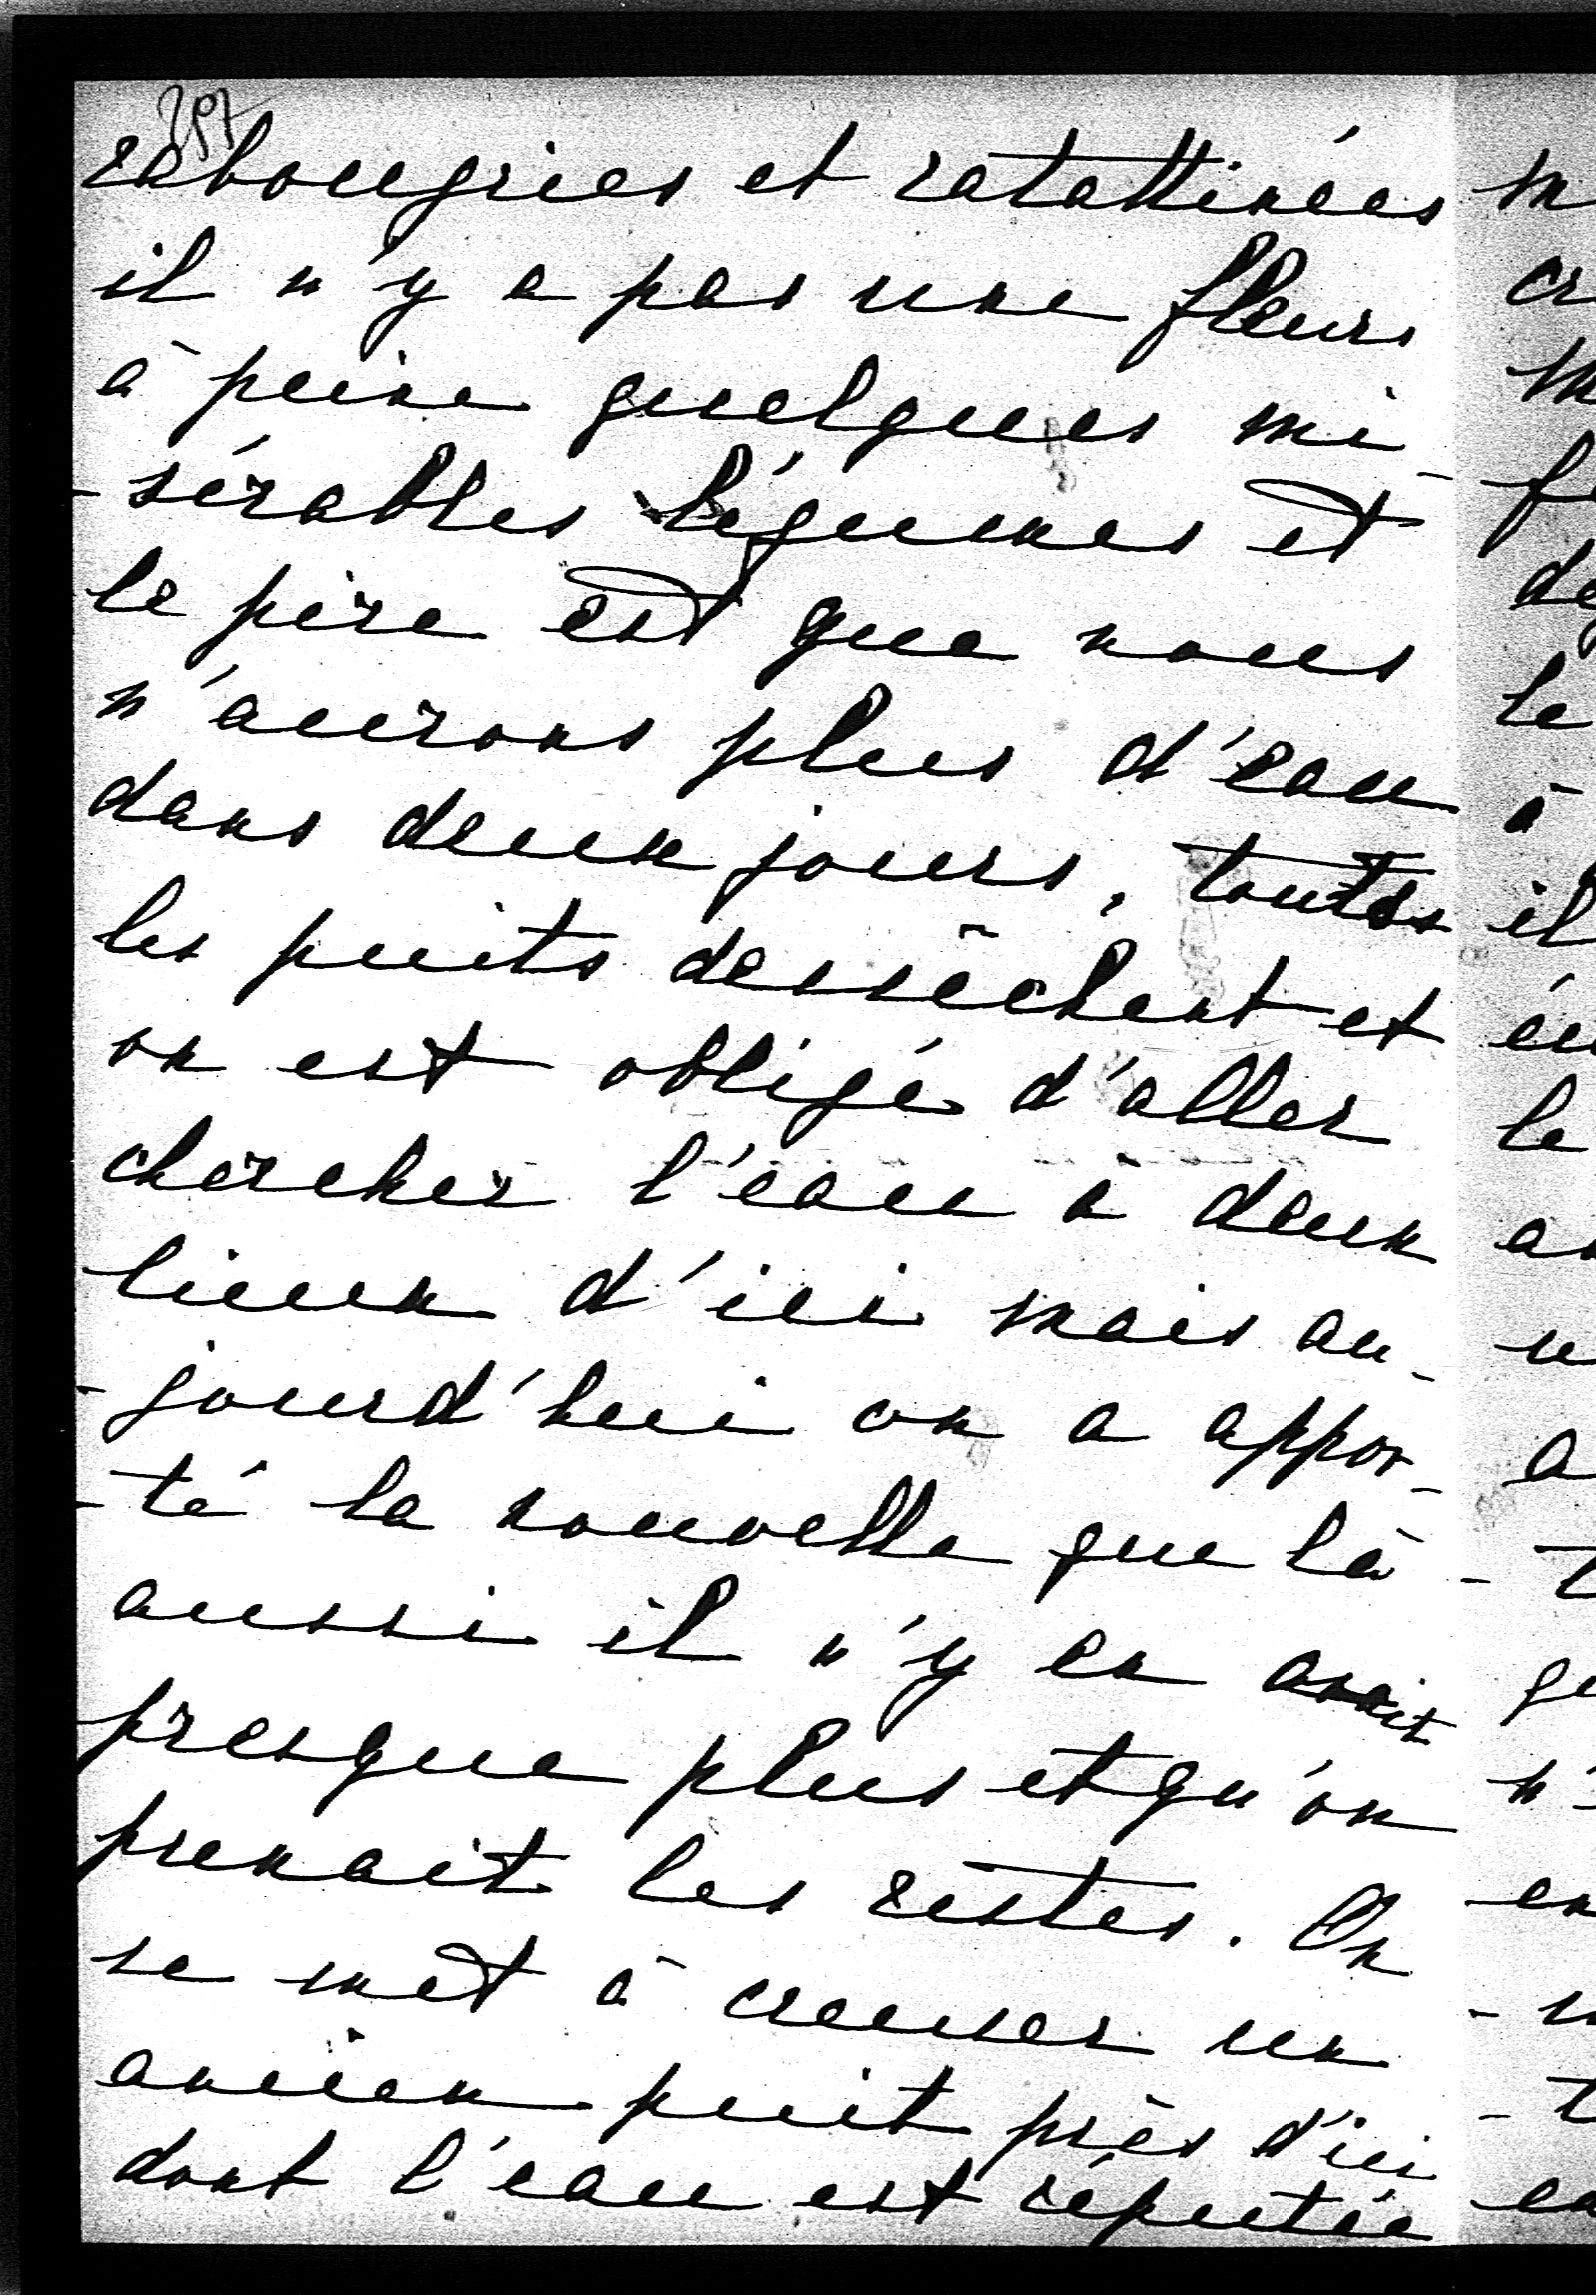 297
rabougries et ratattinées
il n'y a pas une fleurs
à peine quelques mi-
-sérables légumes et
le pire est que nous
n'aurons plus d'eau
dans deux jours, toutes
les puits dessèchent et
on est obligé d'aller
chercher l'eau à deux
lieux d'ici mais au-
-jourd'hui on a appor-
-té la nouvelle que là
aussi il n'y en avait
presque plus et qu'on
prenait les restes. On
se met à creuser un
ancien puit près d'ici
dont l'eau est réputée